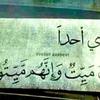 ي أحداً
مَيِّتٌ وَإِنَّهُم مَّيِّتُو